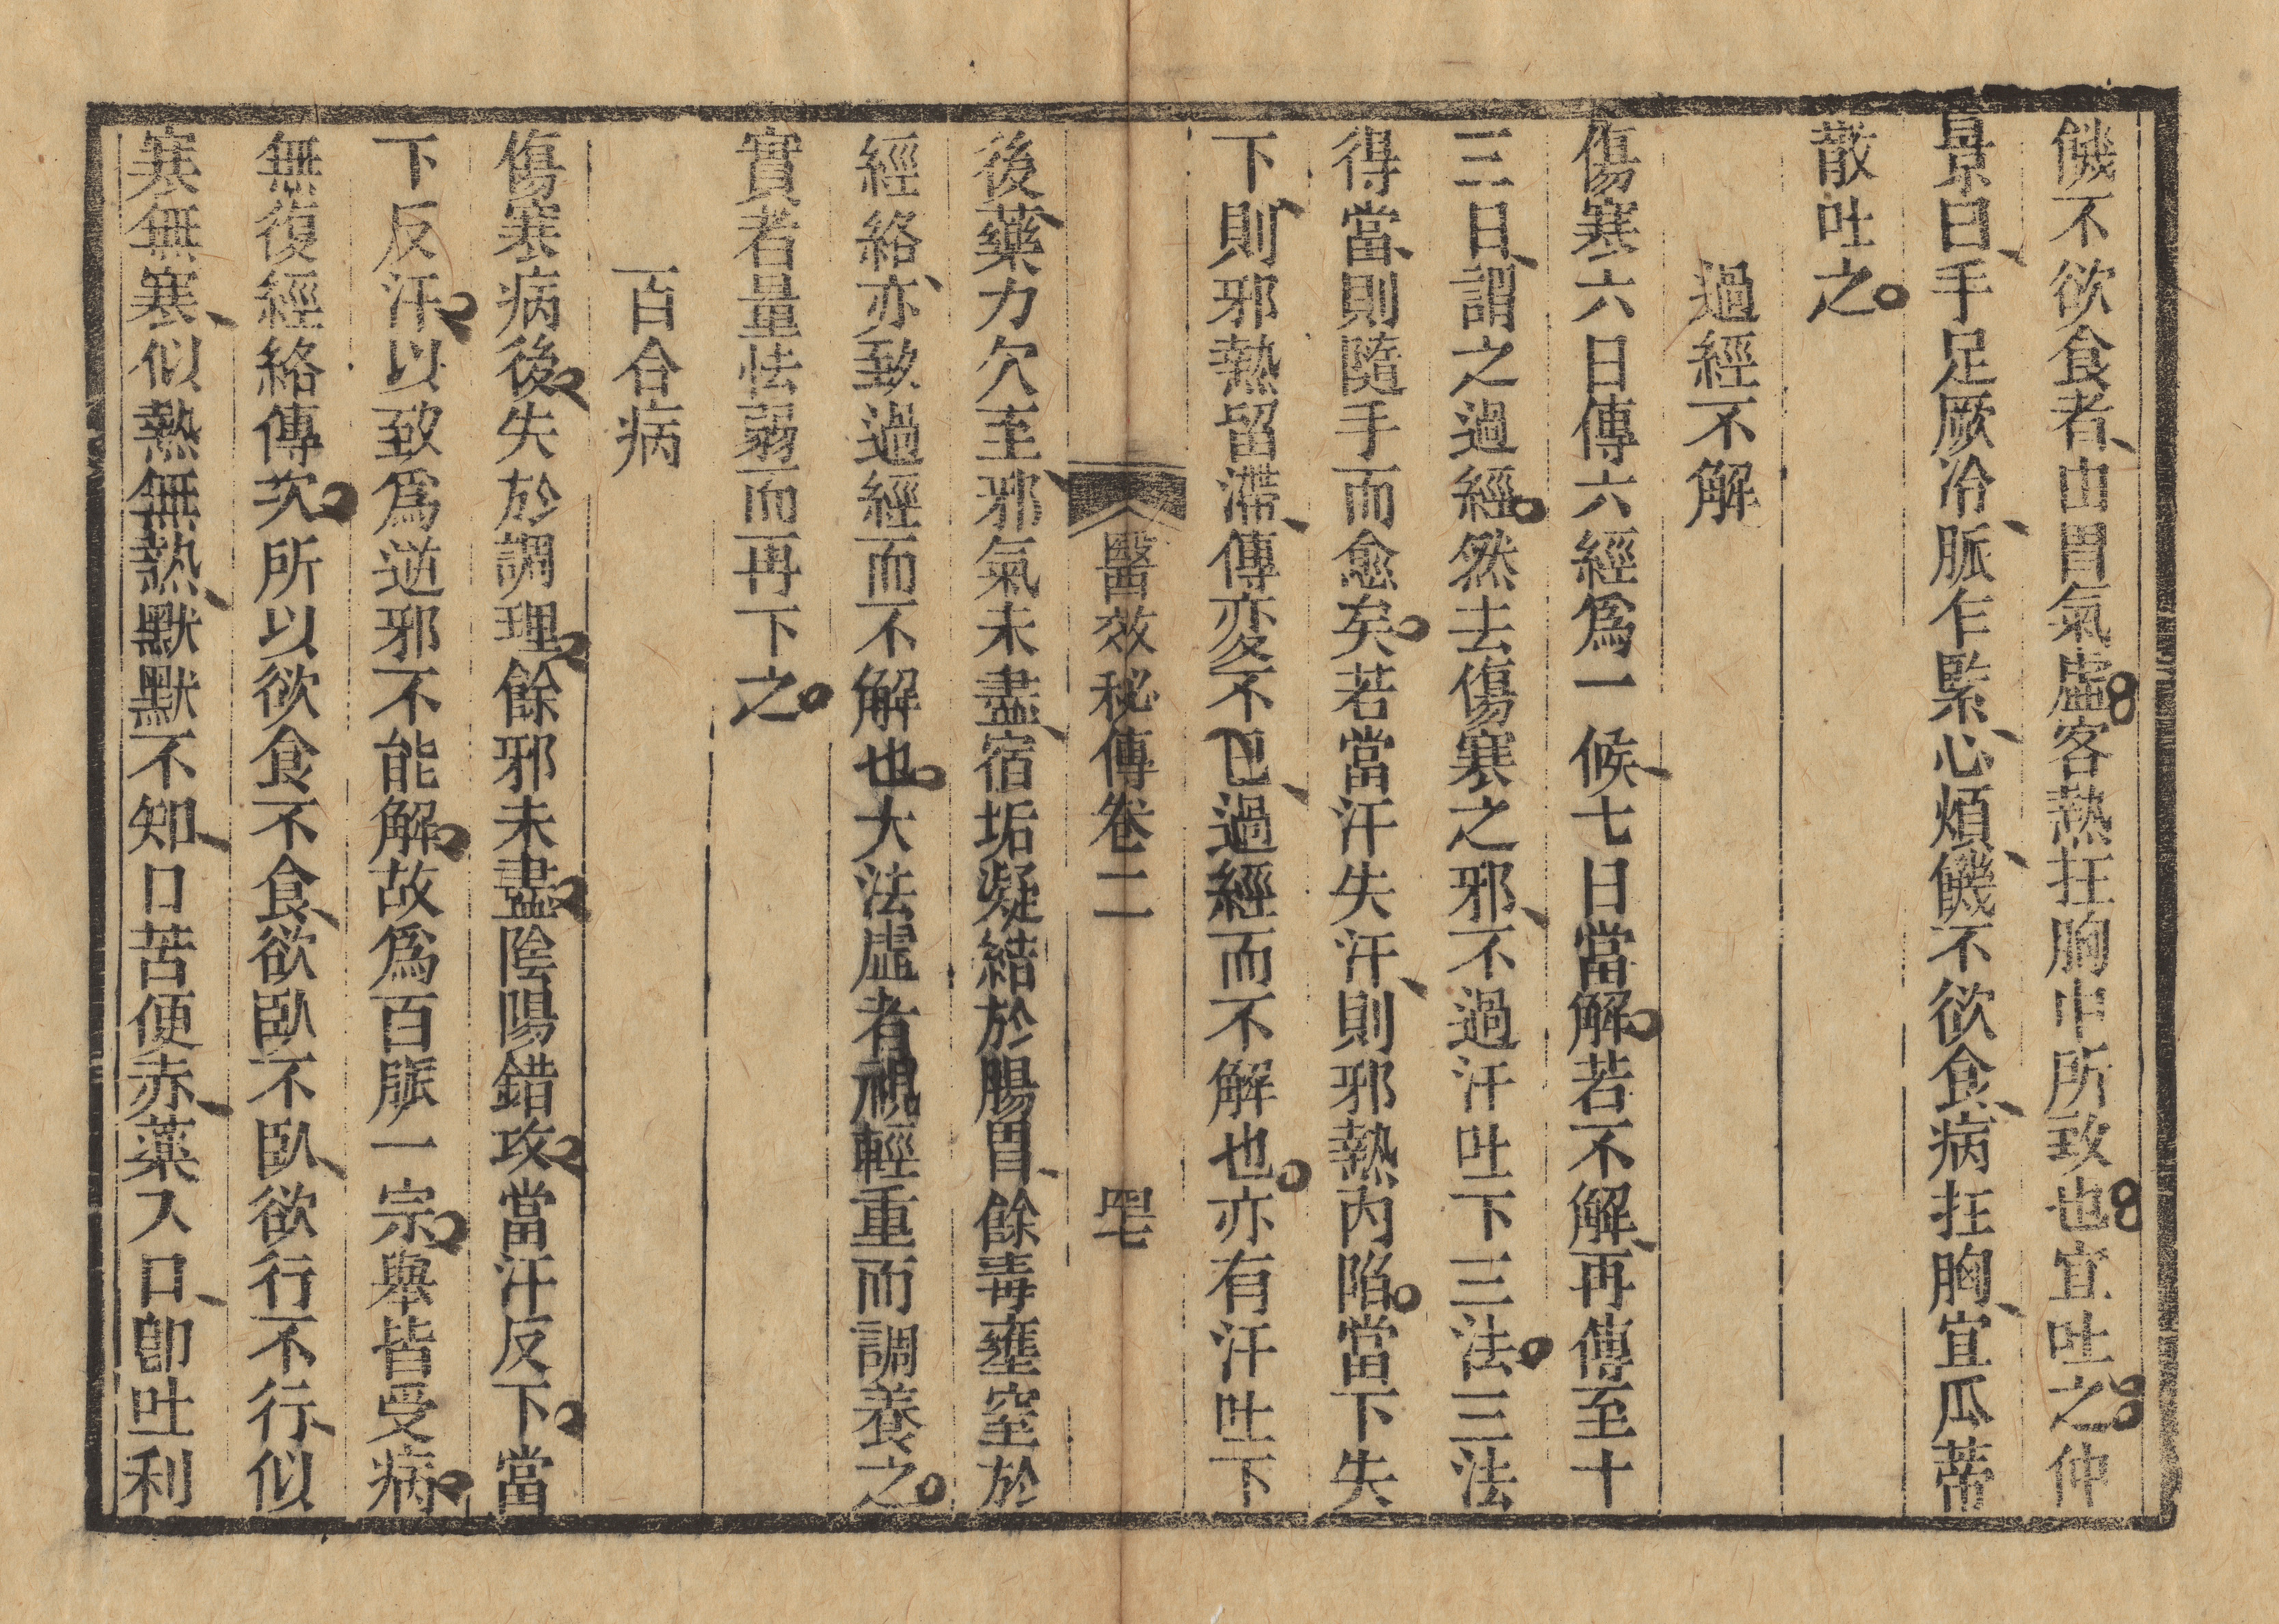 饑不欲食者、由胃氣虛客熱在胸中所致也宜吐之仲
景曰、手足厥冷、脈乍緊、心煩、饑不欲食、病在胸、宜瓜蒂
散吐之。
過經不解
傷寒六日傳六經爲一候、七日當解。若不解、再傳至十
三日、謂之過經。然去傷寒之邪、不過汗吐下三法。三法
得當、則隨手而愈矣。若當汗失汗、則邪熱内陷。當下失
下、則邪熱留滯、傳変不已、過經而不解也。亦有汗吐下
醫效秘傳卷二 四七
後、藥力欠至、邪氣未盡、宿垢凝結於腸胃、餘毒壅窒於
經絡、亦致過經而不解也。大法虛者視輕重而調養之。
實者量怯弱而再下之。
百合病
傷寒病後。失於調理。餘邪未盡。陰陽錯攻。當汗反下。當
下反汗。以致爲逆邪不能解。故爲百脈一宗。舉皆受病。
無復經絡傳次。所以欲食不食、欲臥不臥、欲行不行、似
寒無寒、似熱無熱、默默不知、口苦便赤、薬入口、卽吐利